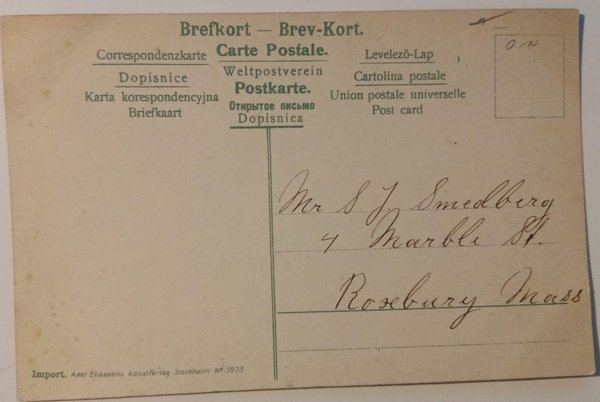 Brefkort — Brev-Kort.
Correspondenzkarte
Carte Postale.
Levelező-Lap
Dopisnice
Weltpostverein
Cartolina postale
Karta korespondencyjna
Postkarte.
Union postale universelle
Briefkaart
Открытое письмо
Post card
Dopisnica
Mr S. J. Smedberg
4 Marble St.
Roxbury Mass
Import. Axel Eliassons Konstförlag. Stockholm Nº 3935